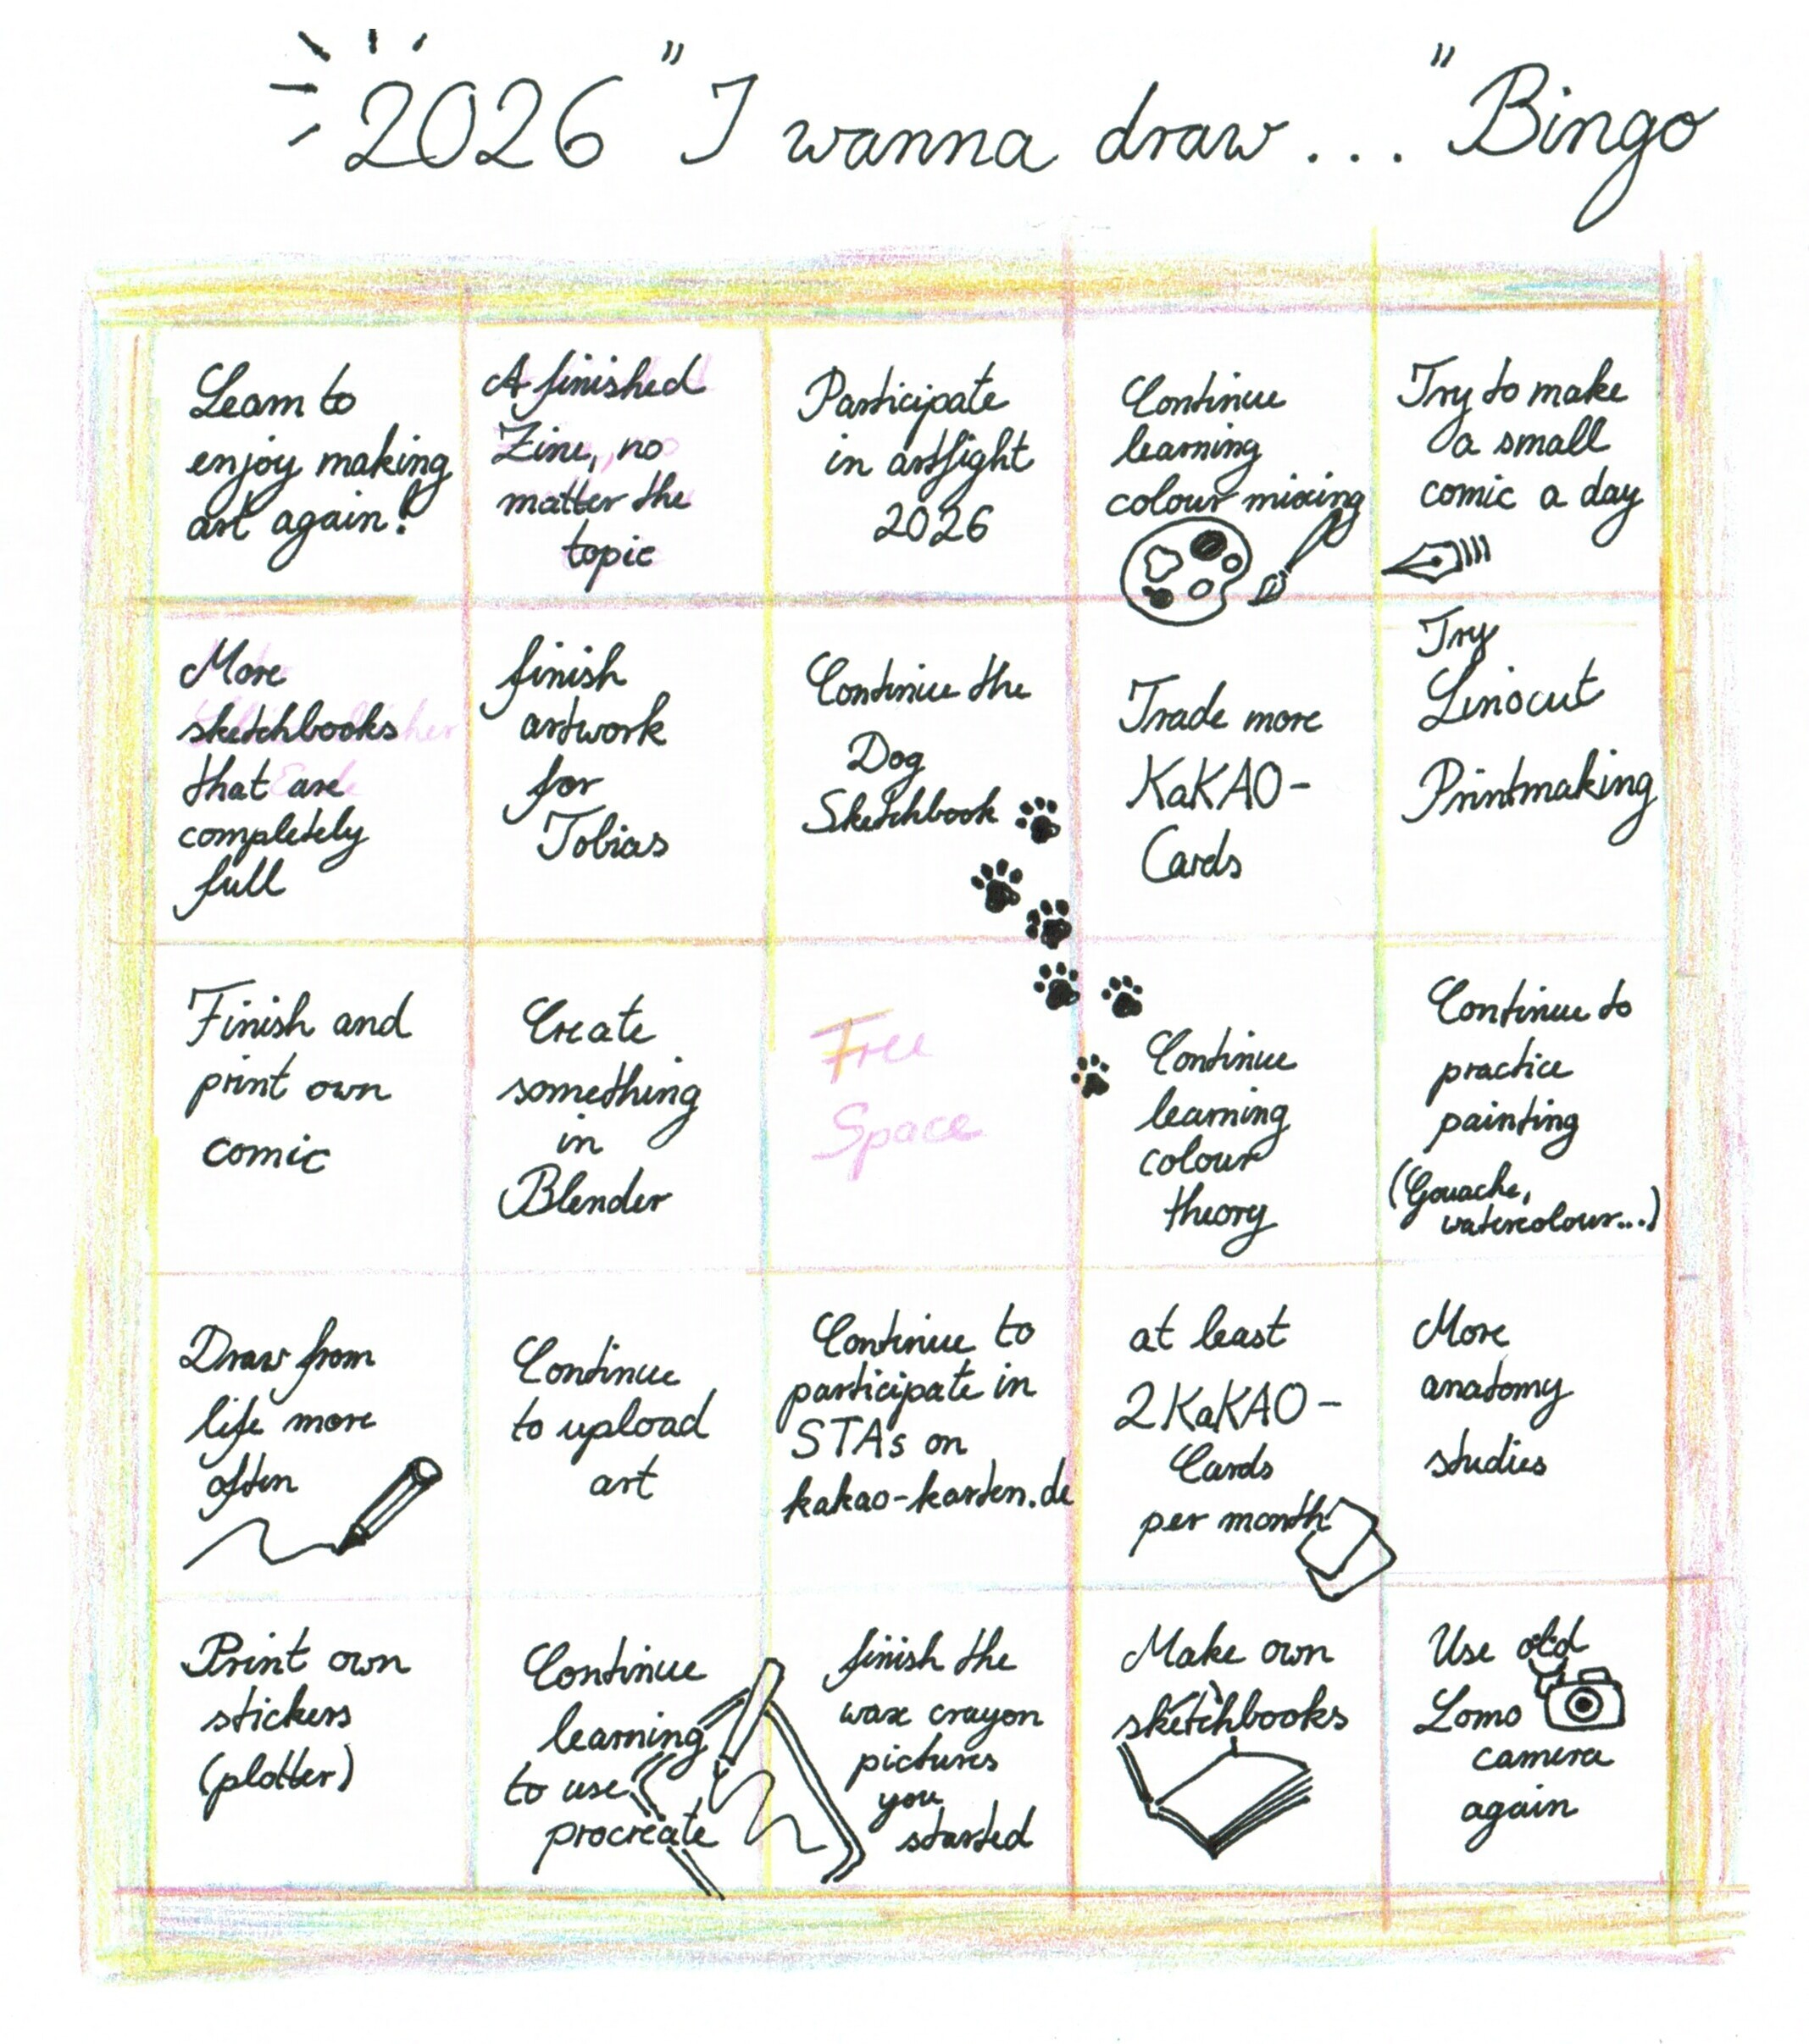 2026 "I wanna draw..." Bingo
Learn to
enjoy making
art again!
A finished
Zine, no
matter the
topic
Participate
in artfight
2026
Continue
learning
colour mixing
Try to make
a small
comic a day
More
sketchbooks
that are
completely
full
finish
artwork
for
Tobias
Continue the
Dog
Sketchbook
Trade more
KaKAO-
Cards
Try
Linocut
Printmaking
Finish and
print own
comic
Create
something
in
Blender
Free
Space
Continue
learning
colour
theory
Continue to
practice
painting
(Gouache,
watercolour...)
Draw from
life more
often
Continue
to upload
art
Continue to
participate in
STAs on
kakao-karten.de
at least
2 KaKAO-
Cards
per month
More
anatomy
studies
Print own
stickers
(plotter)
Continue
learning
to use
procreate
finish the
wax crayon
pictures
you
started
Make own
sketchbooks
Use old
Lomo
camera
again